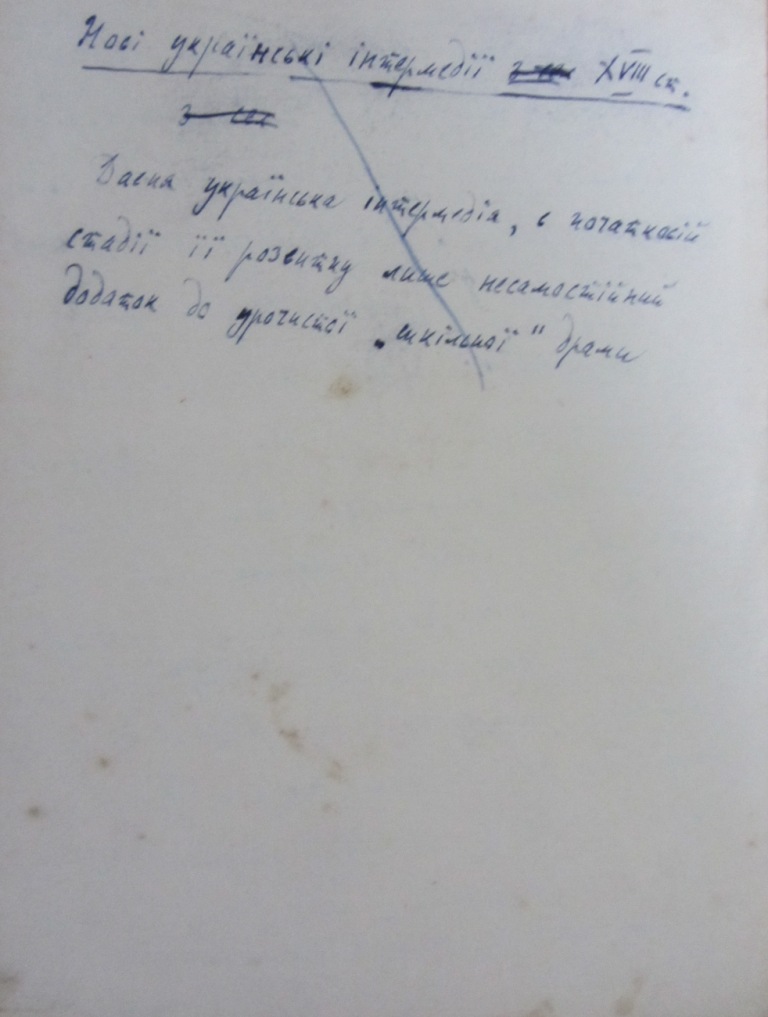 Нові українські інтермедії XVIII ст.
Давня українська інтермедія, в початковій
стадії її розвитку лише несамостійний
додаток до урочистої „шкільної" драми